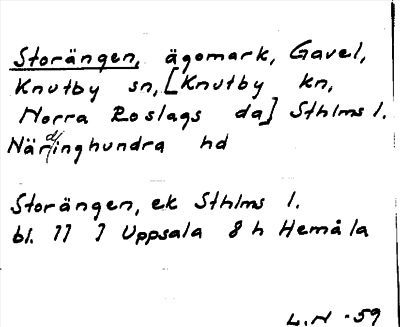 Storängen, ägomark, Gavel,
Knutby sn, [Knutby kn,
Norra Roslags da] Sthlms l.
Närdinghundra hd
Storängen, ek Sthlms l.
bl. 77 7 Uppsala 8 h Hemåla
L.N -59